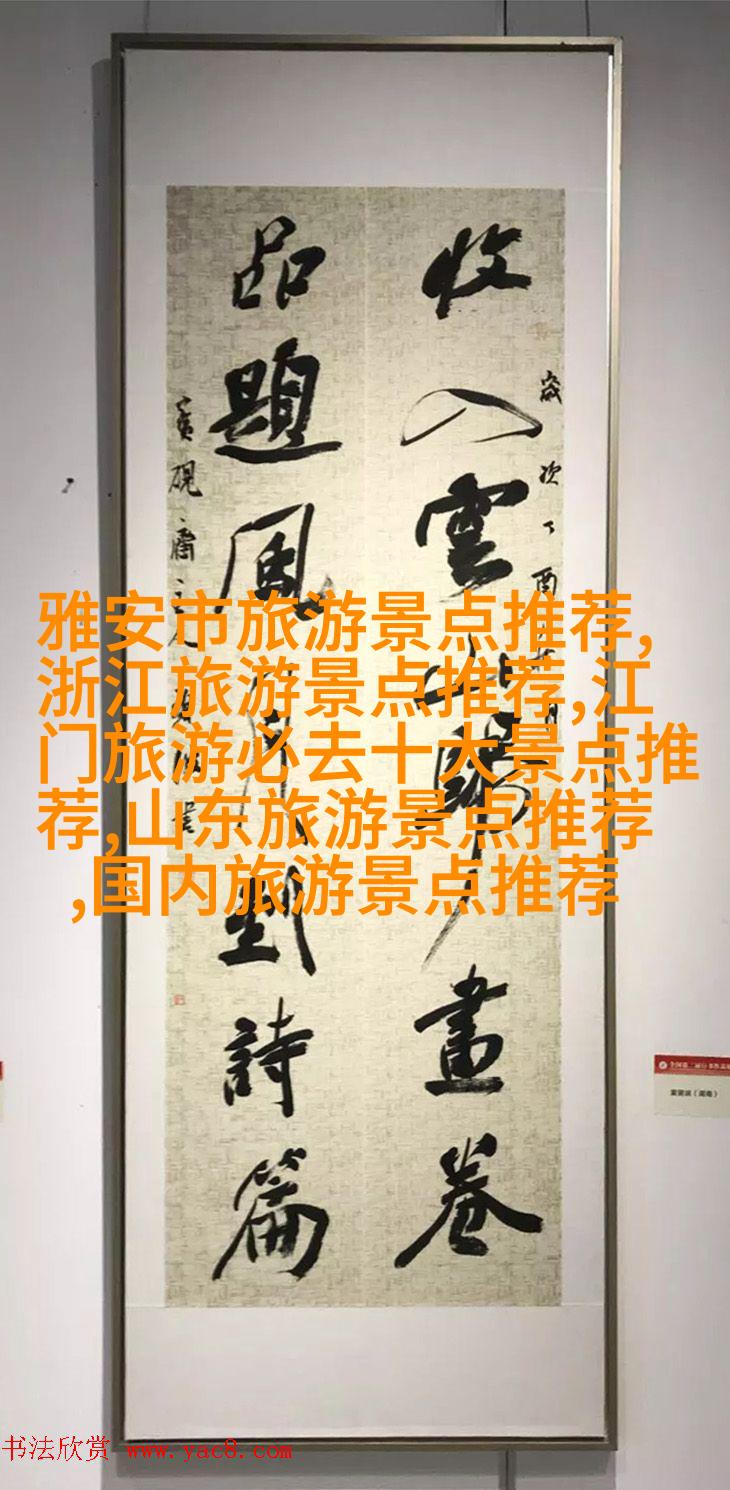 收入雲山歸畫卷
品題風月到詩篇
歲次丁酉
雅安市旅游景点推荐,
浙江旅游景点推荐,江
门旅游必去十大景点推
荐,山东旅游景点推荐
,国内旅游景点推荐
书法欣赏 www.yac8.com